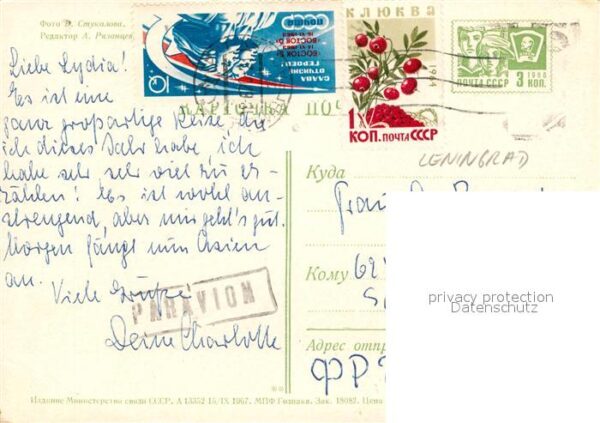 Фото В. Стукалова.
Редактор А. Рязанцев
Liebe Lydia!
Es ist eine
ganz großartige Reise, die
ich dieses Jahr habe, ich
habe sehr sehr viel zu er-
zählen! Es ist wohl an-
strengend, aber mir geht's gut.
Morgen fängt nun Asien
an.
Viele Grüße
Deine Charlotte
PAR AVION
СЛАВА
ОТЧИЗНЫ
ГЕРОЕМ!
ВОСТОК 5
14.VI.1963
ВОСТОК 6
16.VI.1963
ПОЧТА
КЛЮКВА
1964
1
КОП. ПОЧТА СССР
1966
ПОЧТА СССР 3 КОП.
КАРТОЧКА ПОЧ
LENINGRAD
Куда
Frau
Кому 62
Адрес отпр
ФР
privacy protection
Datenschutz
Издание Министерства связи СССР. А 13352 16/IX 1967. МПФ Гознака. Зак. 18082. Цена